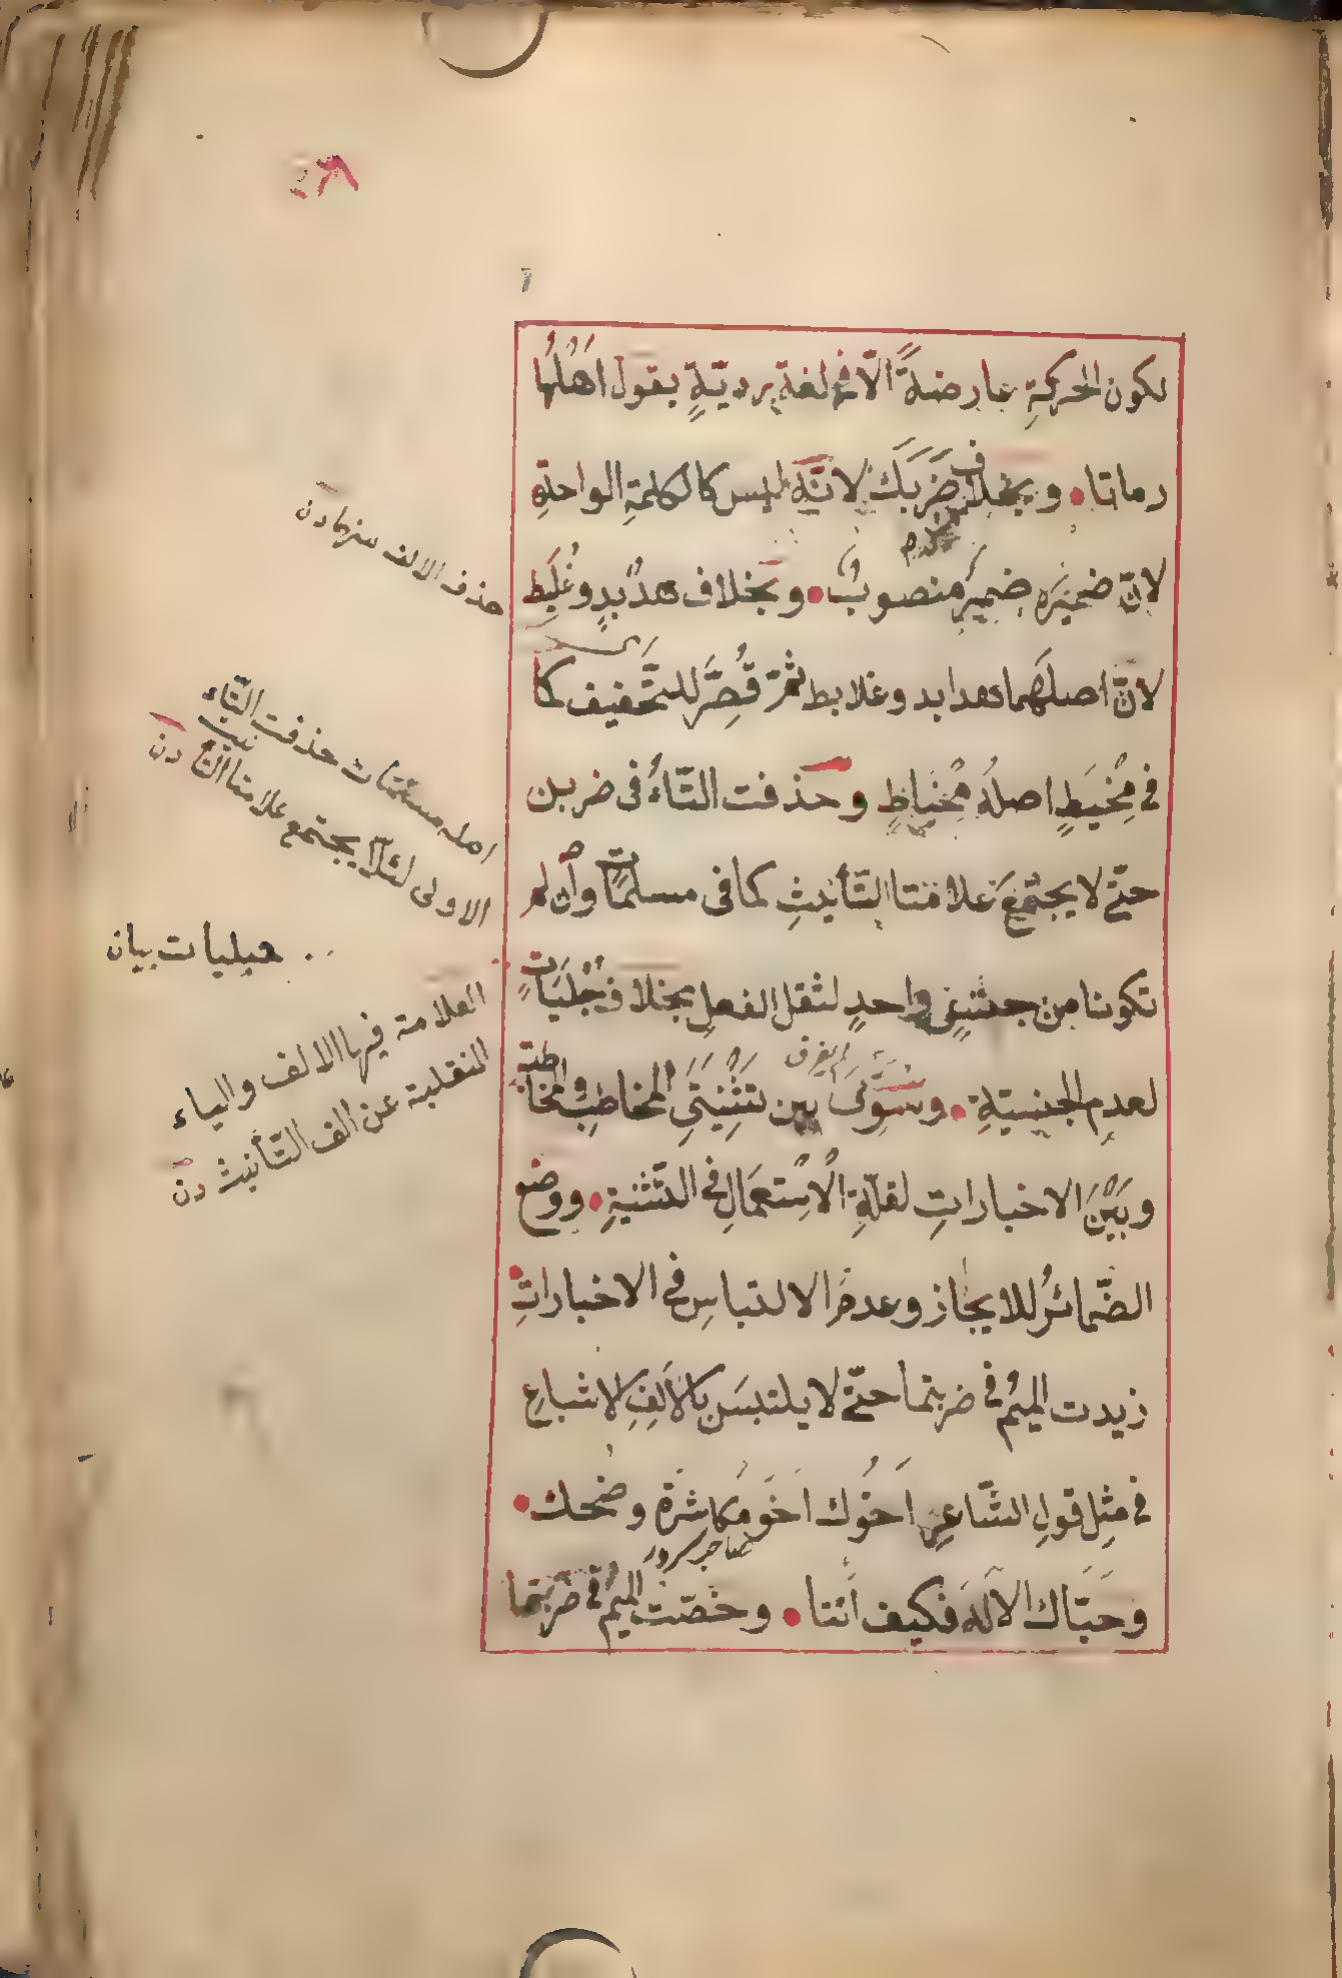 لكون الحركةِ عارضةً الّا فى لغةٍ رديّةٍ يقول اهلُها
رماتا • وبخلاف ضَرَبَكَ لانّه ليس كالكلمةِ الواحدةِ
لانّ ضميرَه ضميرُ منصوبٌ • وبخلاف هدبدٍ وعُلَبِطٍ
لانّ اصلَهما هدابد وعلابط ثمّ قُصِّرَ للتّخفيف كما
فى مِخْيَطٍ اصلُه مِخْياطٍ وحذفت التّاءُ فى ضربن
حتّى لا يجتمعَ علامتا التّأنيثِ كما فى مسلماتٍ وان لم
تكونا من جنسٍ واحدٍ لثقل الفعلِ بخلاف حُبْلَيَاتٍ
لعدمِ الجنسيّةِ • وسَوّى بين تَثْنِيَتَىِ المخاطبِ والمخاطبةِ
وبَيْنَ الاخباراتِ لقلّةِ الاسْتعمَالِ فى التّثنيةِ • ووضع
الضّمائرُ للايجاز وعدمِ الالتباسِ فى الاخباراتِ •
زيدت الميمُ فى ضربتما حتّى لا يلتبسَ بالاَلِفِ الاشباعِ
فى مثِل قولِ الشّاعِرِ اَخوُك اَخوُ مُكاشرَةٍ وضحك •
صاحب سرور
وحَيّاك الالَهُ فكيف اَنتا • وخصّت الميمُ فى ضربتما
حذف الالف منهما دن
اصله مسلمتات حذفت التّاء
الاولى لئلّا يجتمع علامتا التأنيث دن
حبليات بيان
العلامة فيها الالف والياء
المنقلبة عن الف التّأنيث دن